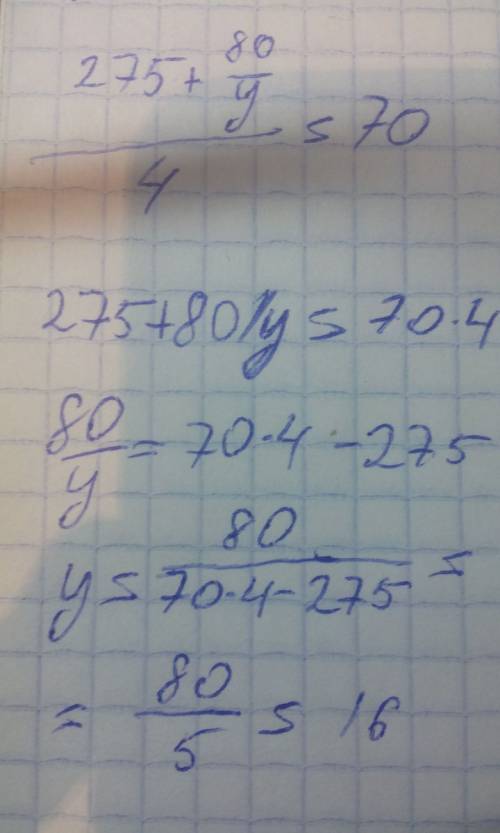 275 + 80/y
4 = 70
275+80/y = 70·4
80/y = 70·4 - 275
y = 80/(70·4-275) =
= 80/5 = 16